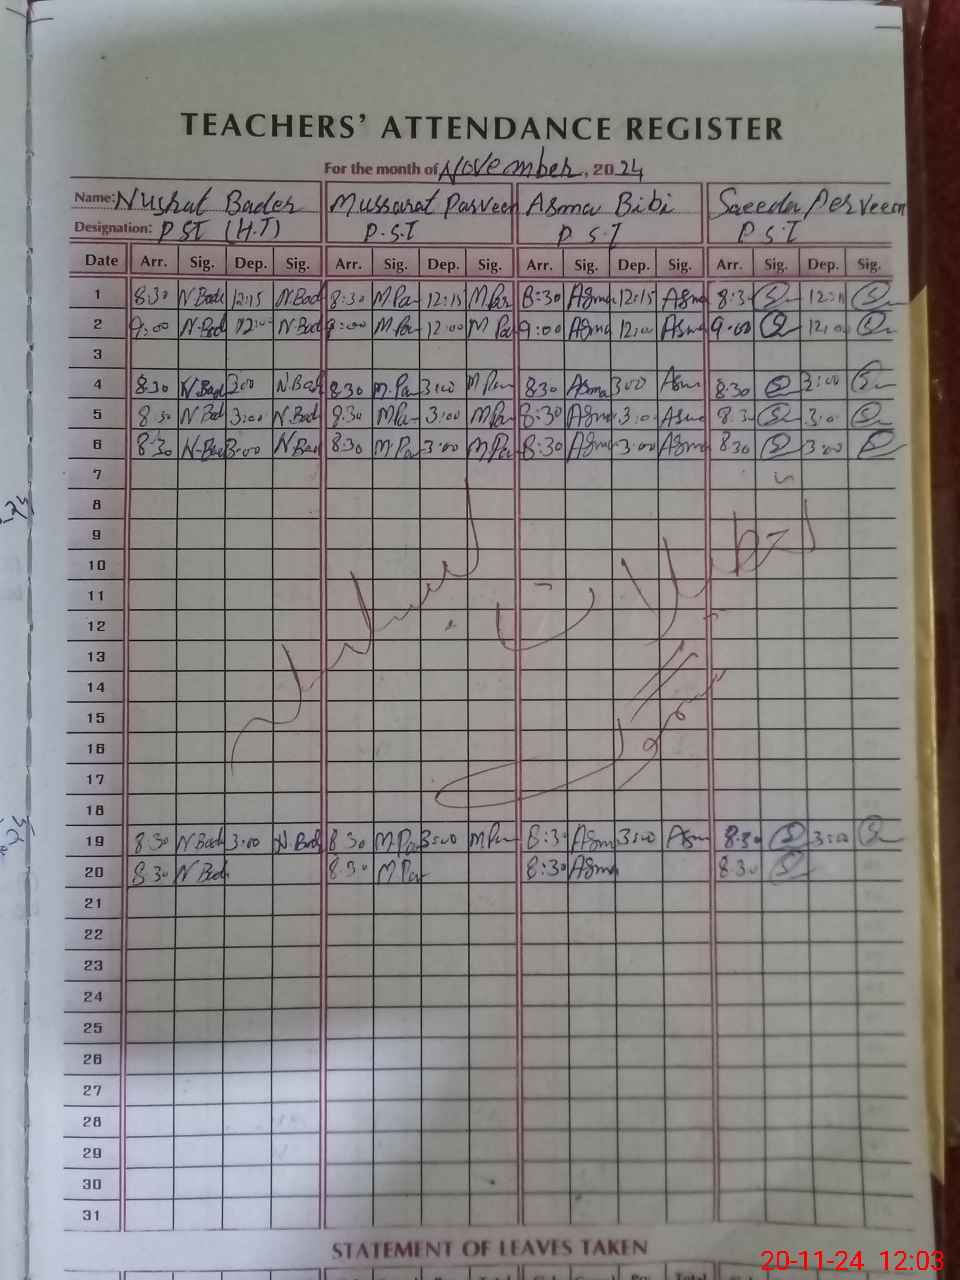 TEACHERS' ATTENDANCE REGISTER
For the month of November, 2024
Name: Nushat Bader Mussarat Parveen Asma Bibi Saeeda Perveen
Designation: PST (H.T) P.S.T P S.T P S.T
Date Arr. Sig. Dep. Sig. Arr. Sig. Dep. Sig. Arr. Sig. Dep. Sig. Arr. Sig. Dep. Sig.
1 8:30 N.Bad 12:15 N.Bad 8:30 M Par 12:15 M Par 8:30 Asma 12:15 Asma 8:3
2 9:00 N.Bad 12:00 N.Bad 9:00 M Par 12:00 M Par 9:00 Asma 12:00 Asma 9:00 12:00
3
4 8:30 N.Bad 3:00 N.Bad 8:30 M.Par 3:00 M Par 8:30 Asma 3:00 Asma 8:30 3:00
5 8:30 N Bad 3:00 N.Bad 8:30 M Par 3:00 M Par 8:30 Asma 3:0 Asma 8:3 3:0
6 8:30 N.Bad 3:00 N Bad 8:30 M.Par 3:00 M.Par 8:30 Asma 3:00 Asma 8:30 3:00
7
8
9
10
11
12
13
14
15
16
17
18
19 8:30 N Bad 3:00 N.Bad 8:30 M.Par 3:00 M Par 8:3 Asma 3:00 Asm 8:30 3:00
20 8:30 N Bad 8:30 M Par 8:30 Asma 8:30
21
22
23
24
25
26
27
28
29
30
31
STATEMENT OF LEAVES TAKEN
20-11-24 12:03